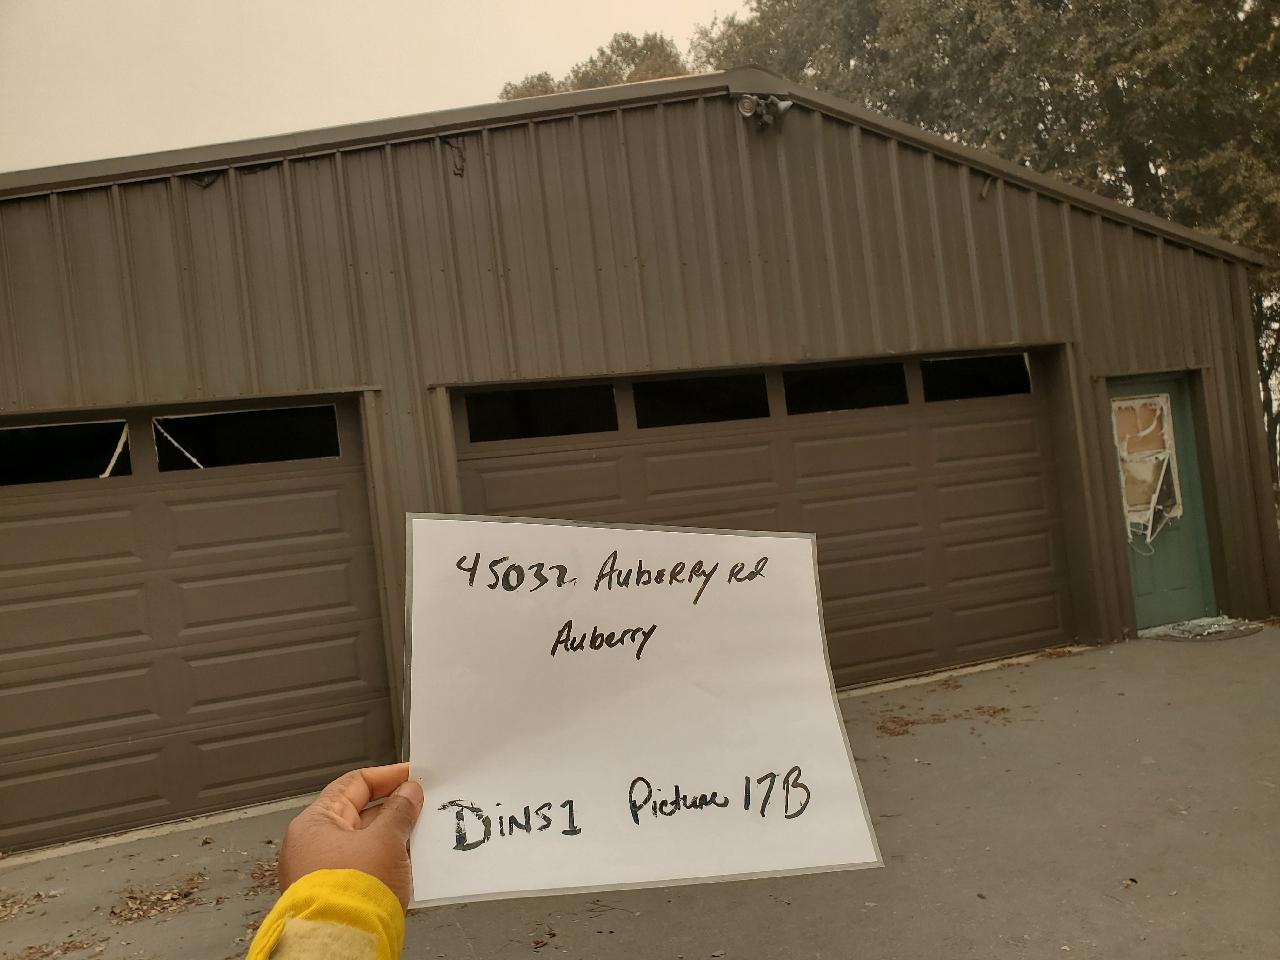 45032 Auberry Rd
Auberry
DINS1 Picture 17B